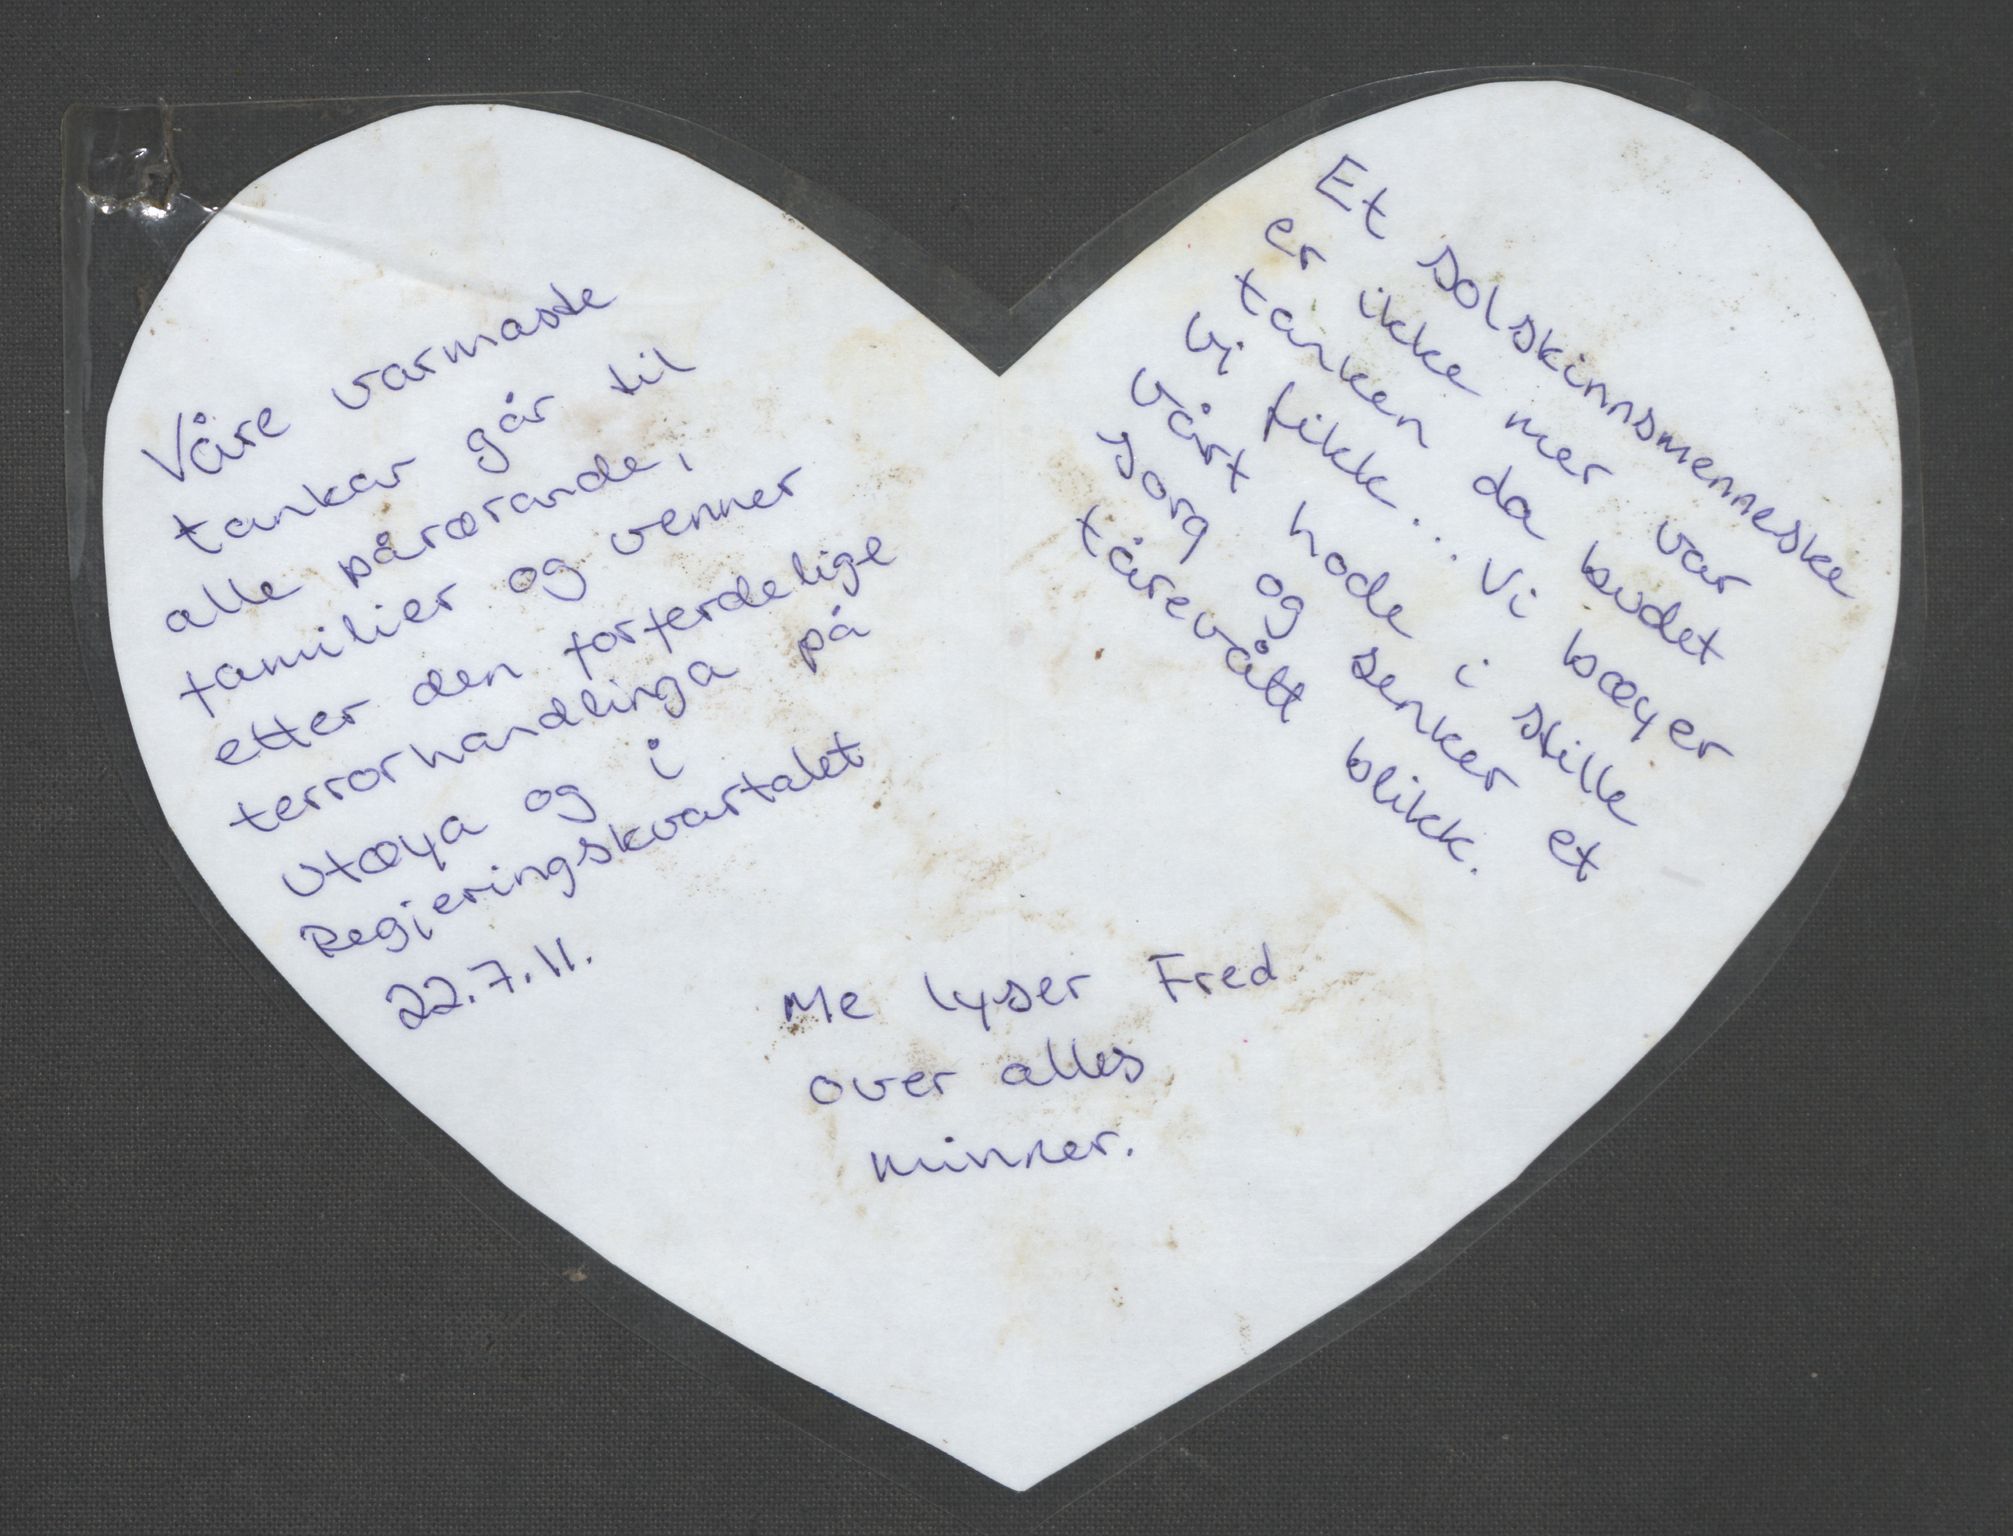 Våre varmaste
tankar går til
alle pårørande,
familier og venner
etter den forferdelige
terrorhandlinga på
Utøya og i
Regjeringskvartalet
22.7.11.
Et solskinnsmenneske
er ikke mer var
tanken da budet
vi fikk... Vi bøyer
vårt hode i stille
sorg og senker et
tårevått blikk.
Me lyser Fred
over alles
minner.